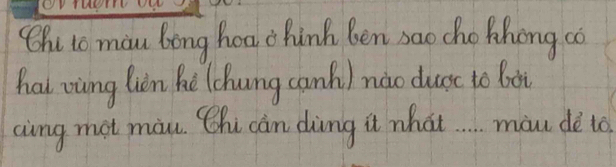 Chi tô màu bông hoa ở hình bên sao cho không có
hai vùng liền kề (chung cạnh) nào được tô bởi
cùng một màu. Chi cần dùng ít nhất ..... màu để tô